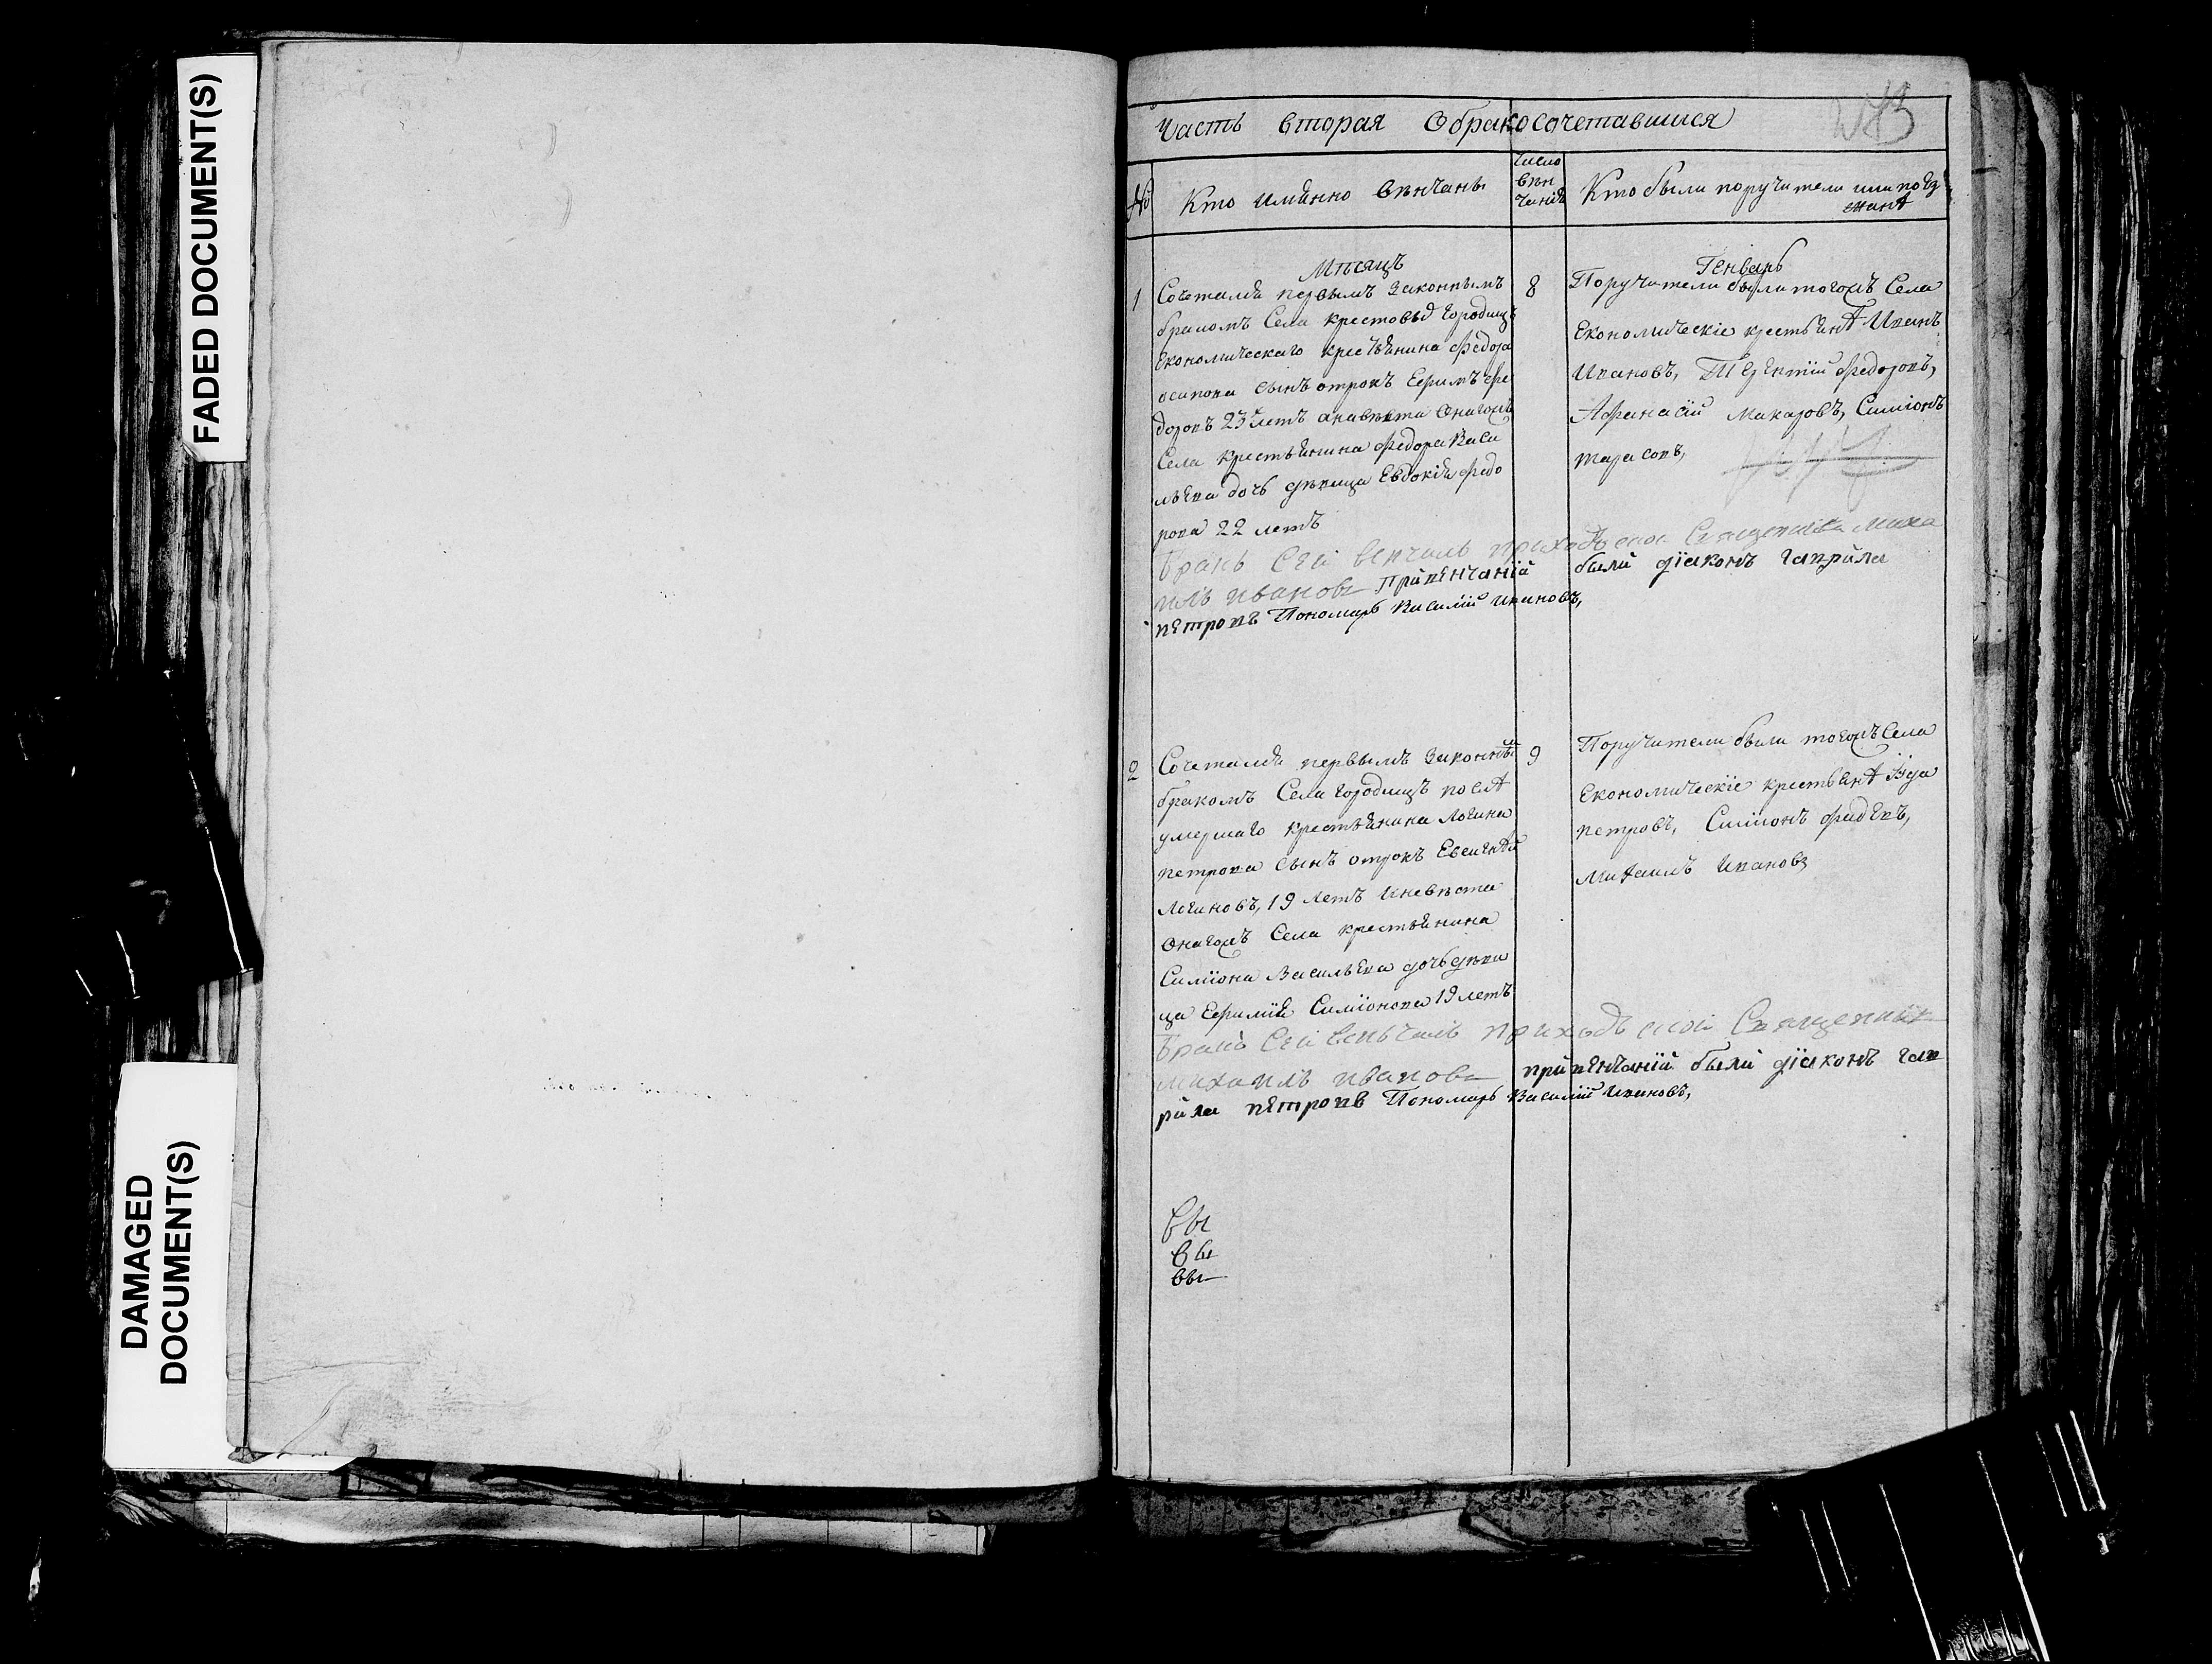 FADED DOCUMENT(S)
DAMAGED
DOCUMENT(S)
Часть вторая О бракосочетавшихся
№
Кто имянно венчаны
Число
вѣн
чанія
Кто были поручители или поѣз
жанѣ
Мѣсяцъ
Генварь
1
Сочетался первымъ законнымъ
бракомъ Села крестовыя городищъ
Економическаго крестьянина Федора
осипова сынъ отрокъ Ефимъ фе
доровъ 23 летъ аневѣста онагожъ
Села крестьянина Федора Васи
льева дочь девица Евдокія Федо
рова 22 летъ
8
Поручители были тогожъ Села
Економическіе крестьянѣ Иванъ
Ивановъ, Терентій Федоровъ,
Афанасій Макаровъ, Симіонъ
тарасовъ,
Бракъ Сей венчалъ приходской Священникъ Миха
илъ ивановъ при венчаніи были діаконъ гаврила
петровъ Пономарь Василій ивановъ,
2
Сочетался первымъ законнымъ
бракомъ Села городищъ послѣ
умершаго крестьянина Логина
петрова сынъ отрокъ Евсигнѣй
Логиновъ, 19 летъ иневѣста
онагожъ Села крестьянина
Симіона Васильева дочь деви
ца Ефимія Симіонова 19 летъ
9
Поручители были тогожъ Села
Економическіе крестьянѣ
петровъ, Симіонъ фадѣевъ,
Михаилъ Ивановъ
Бракъ Сей веньчалъ приходской Священникъ
михаилъ ивановъ при венчаніи были діаконъ гав
рила петровъ Пономарь Василій ивановъ,
вы
вы
вы